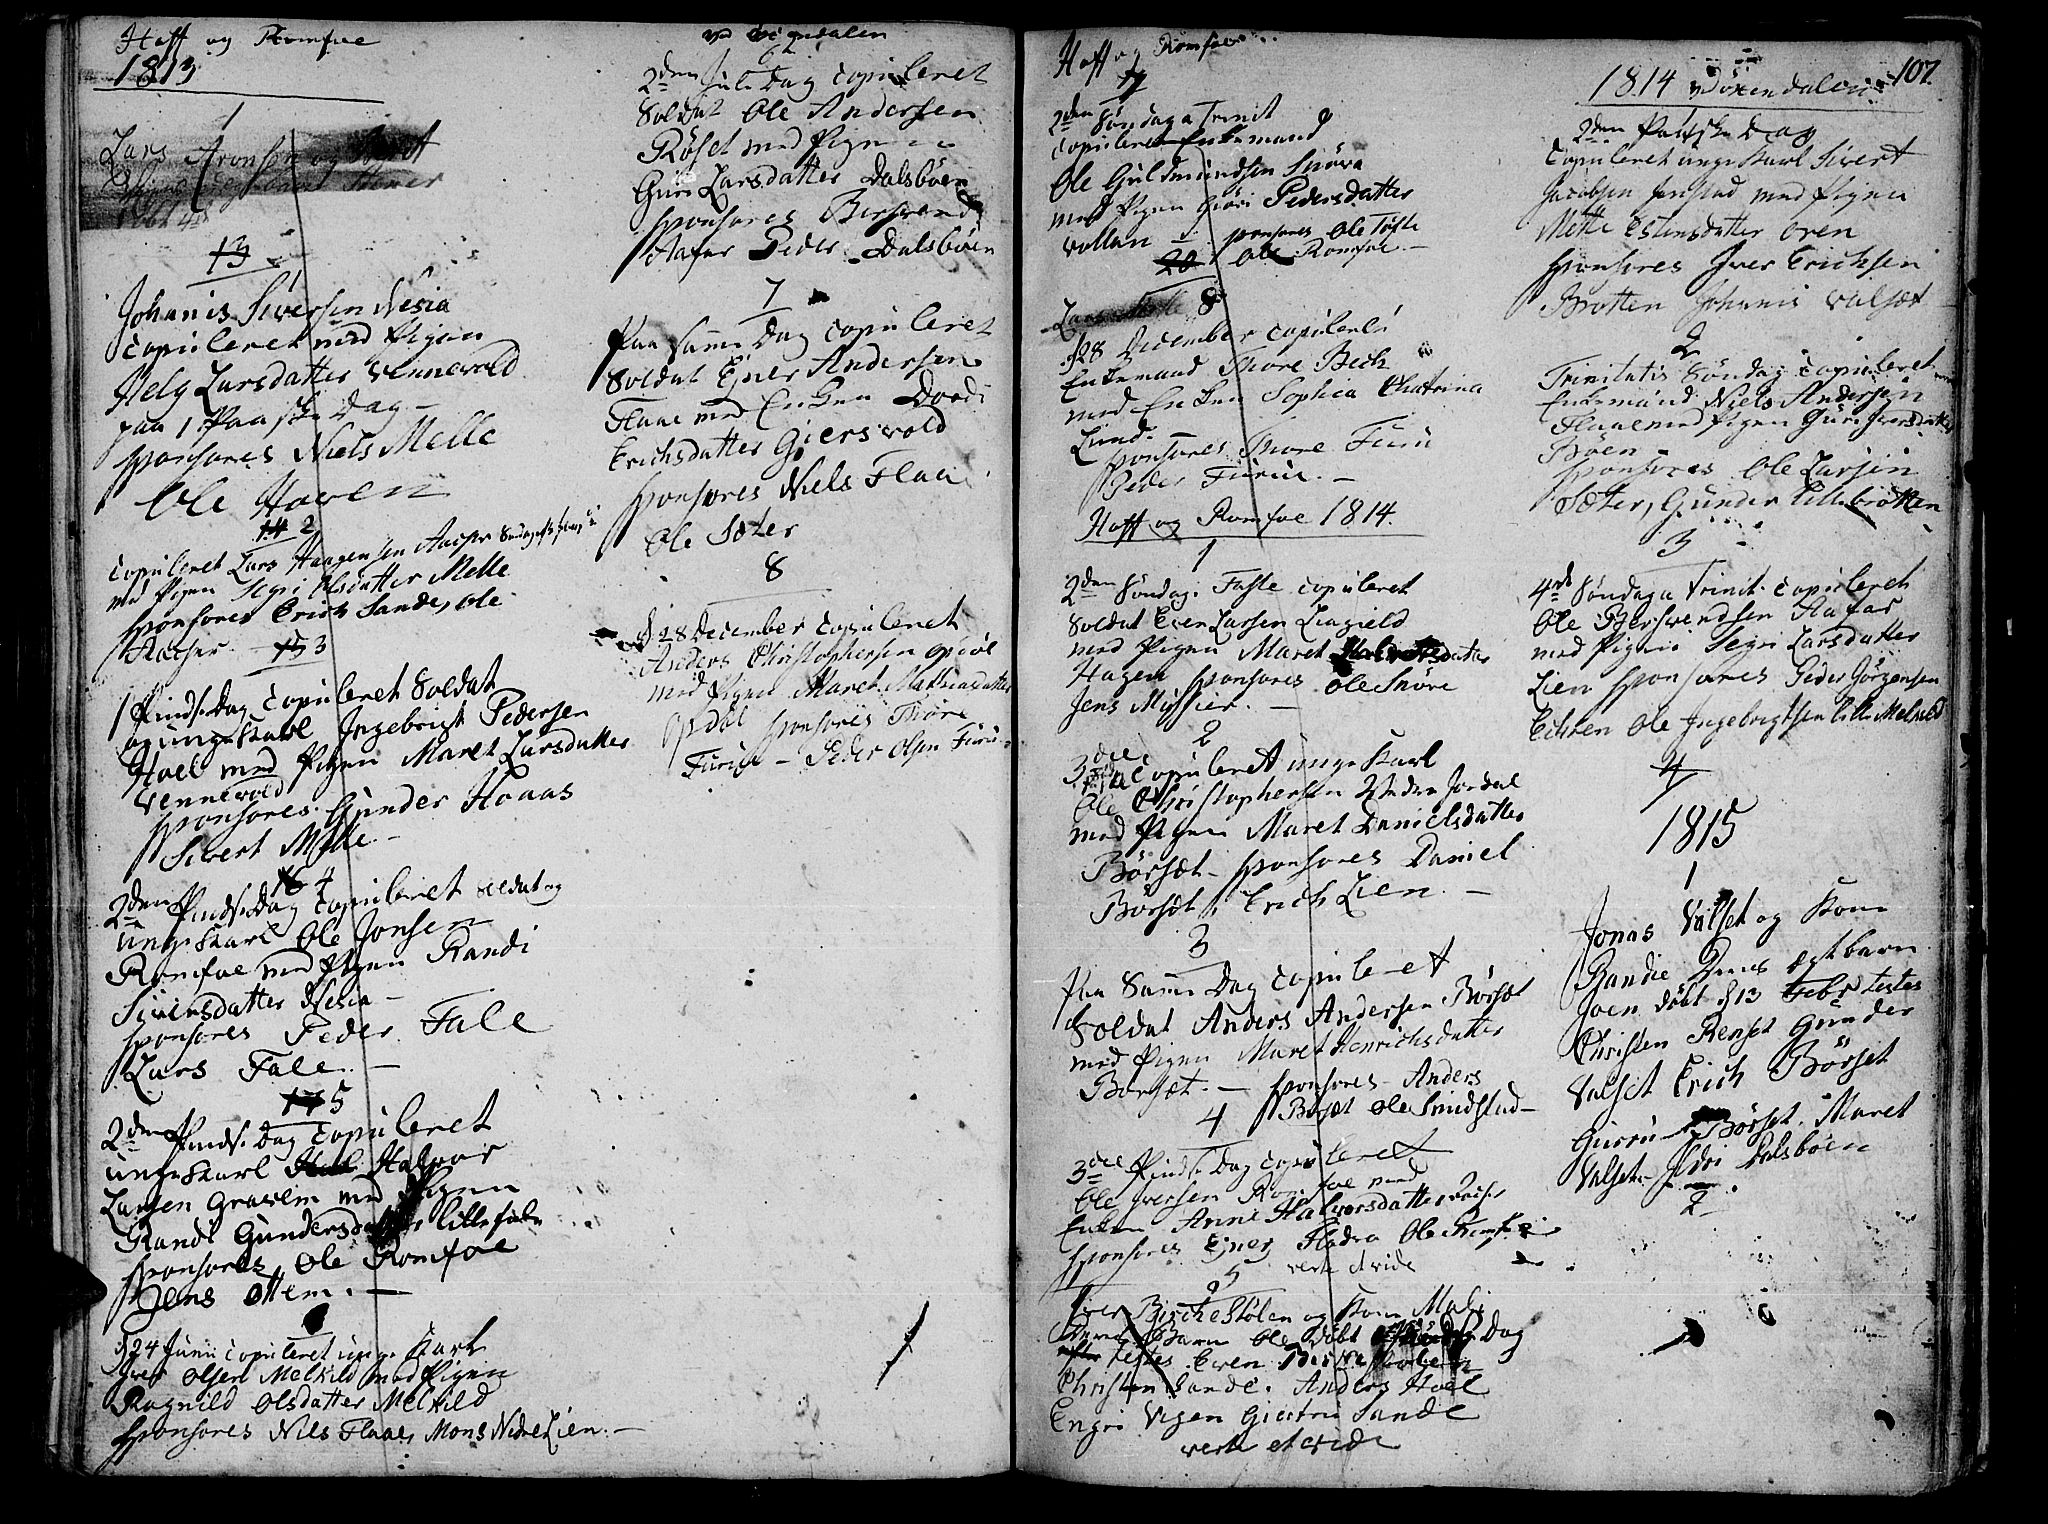 Hoff og Romfoe
1813
1
Lars Aronsen og
13
Johanis Siversen Nesia
copuleret med Pigen
Helg Larsdatter Vennevold
paa 1 Paaske Dag –
sponsores Niels Melle
Ole Hoven
14 2
copuleret Lars Haagensen
med Pigen Segri Olsdatter Melle
sponsores Erich Sande, Ole
15 3
1 Pinds. Dag copuleret Soldat
og unge Karl Ingebrigt Pedersen
Hoel med Pigen Maret Larsdatter
Vennevold
sponsores Gunder Hoaas
Sivert Melle –
16 4
2den Pinds. Dag copuleret Soldat og
unge Karl Ole Jonsen
Romfoe med Pigen Randi
Siversdatter Nesia –
sponsores Peder Fale
Lars Fale. –
17 5
2den Pinds. Dag copuleret
unge Karl Halvor
Larsen Gravem med Pigen
Randi Gundersdatter Lillefale
sponsores Ole Romfoe
Jens Ottem. –
d 24 Junii copuleret unge Karl
Iver Olsen Melkild med Pigen
Ragnild Olsdatter Melkild
sponsores Niels Flaae, Mons Nedre Lien. –
6
2den Jule Dag copuleret
Soldat Ole Andersen
Röset med Pigen
Guri Larsdatter Dalsböen
sponsores Bersvend
Hafar Peder Dalsböen
7
Paa samme Dag copuleret
Soldat Ejner Andersen
Flaae med Enken Dordi
Erichsdatter Gjersvold
sponsores Niels Flaa
Ole Sæter
8
d. 28 December copuleret
Anders Christophersen Opdöl
med Pigen Maret Mathiasdatter
Opdöl sponsores Thore
Furu – Peder Olsen Furu
Hoff og Romfoe
7
2den Söndag a Trinit
copuleret Enkemand
Ole Guldmundsen Snöva
med Pigen Guri Pedersdatter
Vollan sponsores Ole Töfte
20 Ole Romfoe. –
8
d 28 December copuleret
Enkemand Thore Bech
med Enken Sophia Chatrina
Lund.
sponsores Thore Furu
Peder Furu. –
Hoff og Romfoe 1814.
1
2den Söndag i Faste copuleret
Soldat Even Larsen
med Pigen Maret
Hagen sponsores Ole Snöve
Jens –
2
3die copuleret unge Karl
Ole Christophersen Nedre Jordal
med Pigen Maret Danielsdatter
Börsæt – sponsores Daniel
Börsæt, Erich Lien. –
3
Paa Samme Dag copuleret
Soldat Anders Andersen Börsæt
med Pigen Maret Henrichsdatter
Börsæt. – sponsores Anders
4 Börsæt Ole Smidstad –
3die Pindse Dag copuleret
Ole Iversen Romfoe med
Enken Anne Halvorsdatter
sponsores Ejner Flodra Ole Romfoe
verte et vide
5
Iver Birchestölen og Kone Mali
Deres Barn Ole döbt Dag
testes Even
Christen Sande. Anders Hoel
Engri Vigen Giertru Sande
verte et vide
107
1814 ved Öxendalen
1
2den Paaske Dag
copuleret unge Karl Sivert
Jacobsen med Pigen
Mette Estensdatter Oren
sponsores Iver Erichsen
Brotten Johanis Valsæt
2
Trinitatis Söndag copuleret
Enkemand Niels Andersen
Flaae med Pigen Guri Iversdatter
Böen
sponsores Ole Larsen
Sæter, Gunder Lillebrotten
3
4de Söndag a Trinit. copuleret
Ole Bersvendsen Hafar
med Pigen Segri Larsdatter
Lien sponsores Peder Jörgensen
Echren Ole Ingebrigtsen Lille Melkild
4
1815
1
Jonas Valset og Kone
Randie Deres ægtbarn
Joen döbt d 13 Febr testes
Christen Renset Gunder
Valset Erich Börset
Gurru Börset. Maret
Valset – Ildri Dalsböen
2